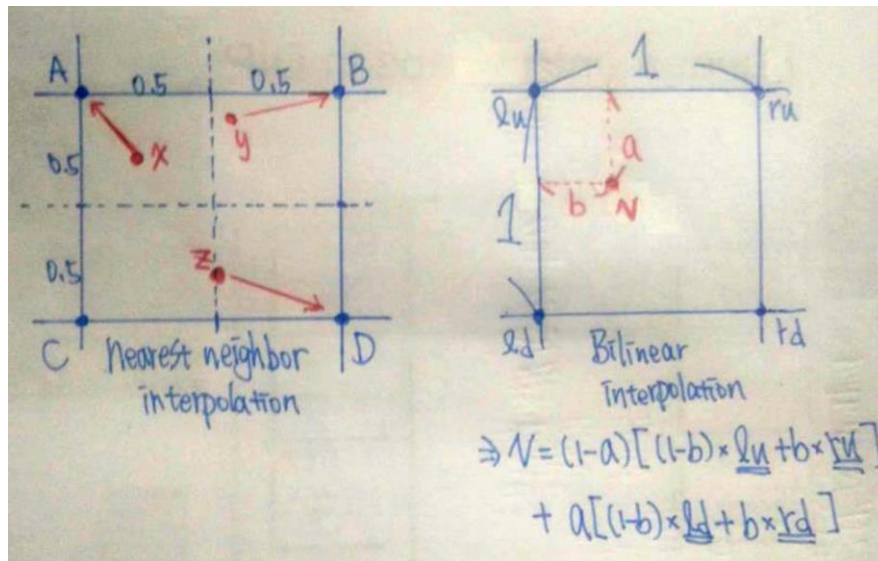 A 0.5 0.5 B
0.5
x
y
0.5
z
C D
Nearest neighbor
interpolation
1
lu ru
a
b N
1
ld rd
Bilinear
interpolation
⇒ N = (1-a)[(1-b)×lu+b×ru]
+ a[(1-b)×ld+b×rd]